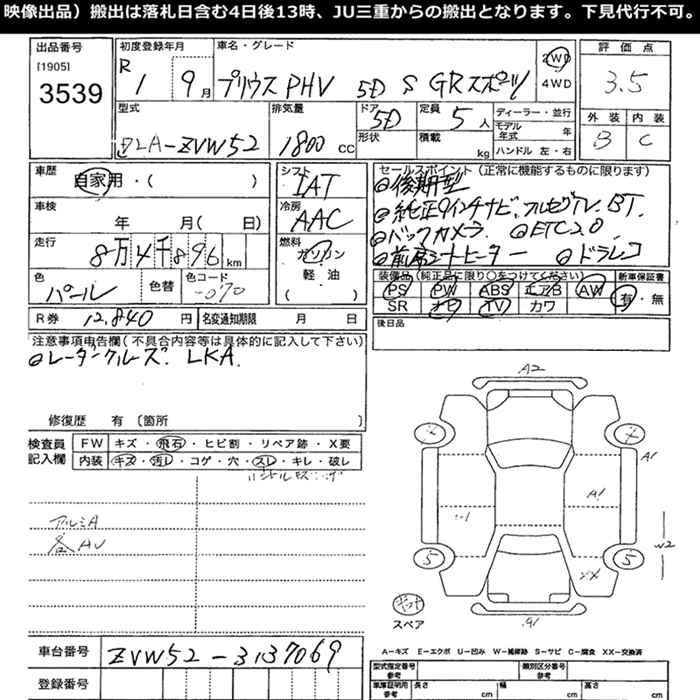 映像出品）搬出は落札日含む4日後13時、JU三重からの搬出となります。下見代行不可。
出品番号
[1905]
3539
初度登録年月
R 1 9月
車名・グレード
プリウスPHV 5D S GRスポーツ
2WD
4WD
評価点
3.5
外装 内装
B C
型式
DLA-ZVW52
排気量
1800 CC
ドア 5D
形状
定員 5人
積載 kg
ディーラー・並行
モデル年式 年
ハンドル 左・右
車歴
自家用・( )
車検
年 月( 日)
走行
8万4千896km
色
パール
色替
色コード
-070
シフト
IAT
冷房
AAC
燃料
ガソリン
軽油
( )
セールスポイント（正常に機能するものに限ります）
後期型
純正9インチナビ、フルセグTV、BT
バックカメラ ETC2.0
前席シートヒーター ドラレコ
装備品（純正品に限り○をつけてください）
PS PW ABS エアB AW
SR ナビ TV カワ
新車保証書
有・無
R券 12,840円
名変通知期限 月 日
後日品
注意事項申告欄（不具合内容等は具体的に記入して下さい）
レーダークルーズ LKA
修復歴 有〔箇所 〕
検査員記入欄
FW キズ・飛石・ヒビ割・リペア跡・X要
内装 キズ・汚レ・コゲ・穴・スレ・キレ・破レ
アルミA
各AU
A2
A1
A1
W2
XX
5
5
スペア
A-キズ E-エクボ U-凹み W-補修跡 S-サビ C-腐食 XX-交換済
車台番号
ZVW52-3137069
登録番号
型式指定番号
類別区分番号
車庫証明用参考
長さ cm
幅 cm
高さ cm